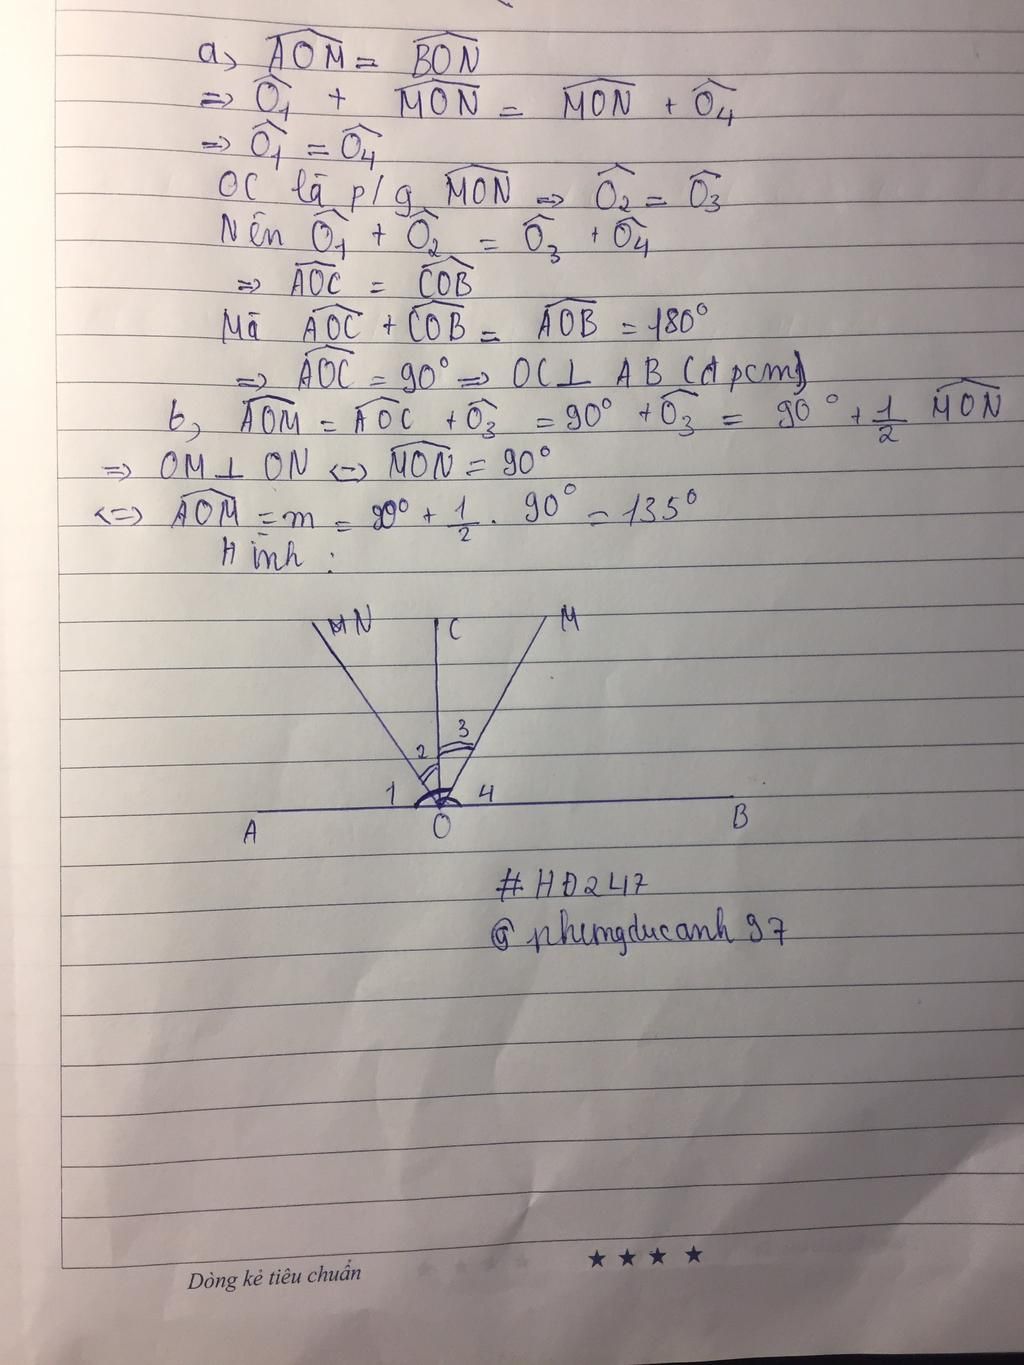 a, AOM̂ = BON̂
=> Ô1 + MON̂ = MON̂ + Ô4
=> Ô1 = Ô4
OC là p/g MON̂ => Ô2 = Ô3
Nên Ô1 + Ô2 = Ô3 + Ô4
=> AOĈ = COB̂
Mà AOĈ + COB̂ = AOB̂ = 180°
=> AOĈ = 90° => OC ⊥ AB (đpcm)
b, AOM̂ = AOĈ + Ô3 = 90° + Ô3 = 90° + 1/2 MON̂
=> OM ⊥ ON <=> MON̂ = 90°
<=> AOM̂ = m = 90° + 1/2 . 90° = 135°
Hình :
N C M
2 3
1 4
A O B
#HĐ247
@phungducanh97
Dòng kẻ tiêu chuẩn ★ ★ ★ ★